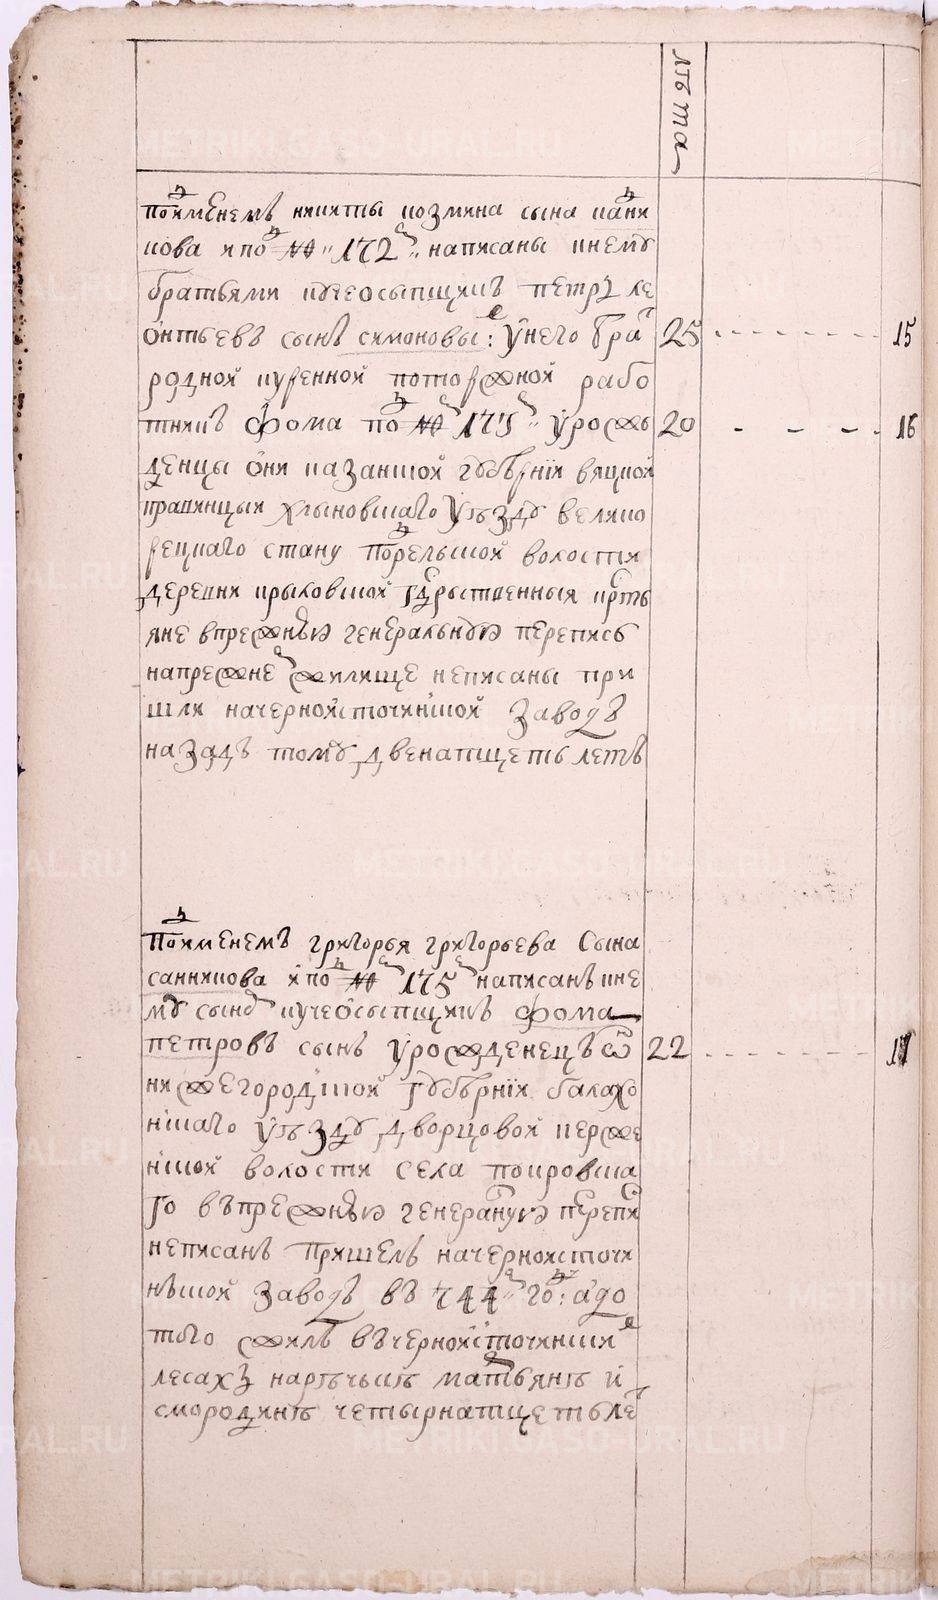 лѣта
под имЕнемъ никиты козмина сына кани
кова и под № 172 м написаны к нему
братьями кучеосыпщикъ петръ ле
онтьевъ сынъ симоновы: у него бра 25 15
родной куренной потор жной рабо
тникъ фома под № 171 м урож 20 16
денцы они казанской губернїи вяцкой
правинцыи хлыновскаго уѣзду велико
рецкаго стану порельской волости
деревни крыловской гдрственныя крть
яне в прежнюю генеральную перепись
на прежнем жилище не писаны при
шли на черноисточинской заводъ
назадъ тому двенатцеть летъ
под имЕнемъ григорья григорьева сына
санникова и под № 175 м написанъ к не
му сыном кучеосыпщикъ фома
петровъ сынъ урожденецъ ѿ 22 17
нижегородской губернїи балахо
нскаго уѣзду дворцовой керже
нской волости села покровска
го въ прежнюю генералную перепи
не писанъ пришелъ на черноисточи
нской заводъ въ 744 м году: а до
того жилъ въ черноисточински
лесахъ на рѣчькѣ матвянѣ и
смородинѣ четырнатцеть ле
METRIKI.GASO-URAL.RU